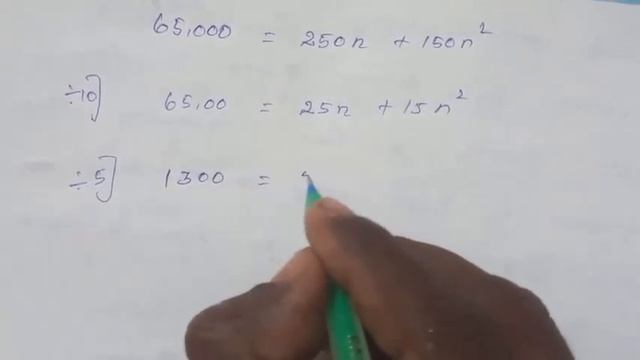 65,000 = 250n + 150n²
÷10] 65,00 = 25n + 15n²
÷5] 1300 =